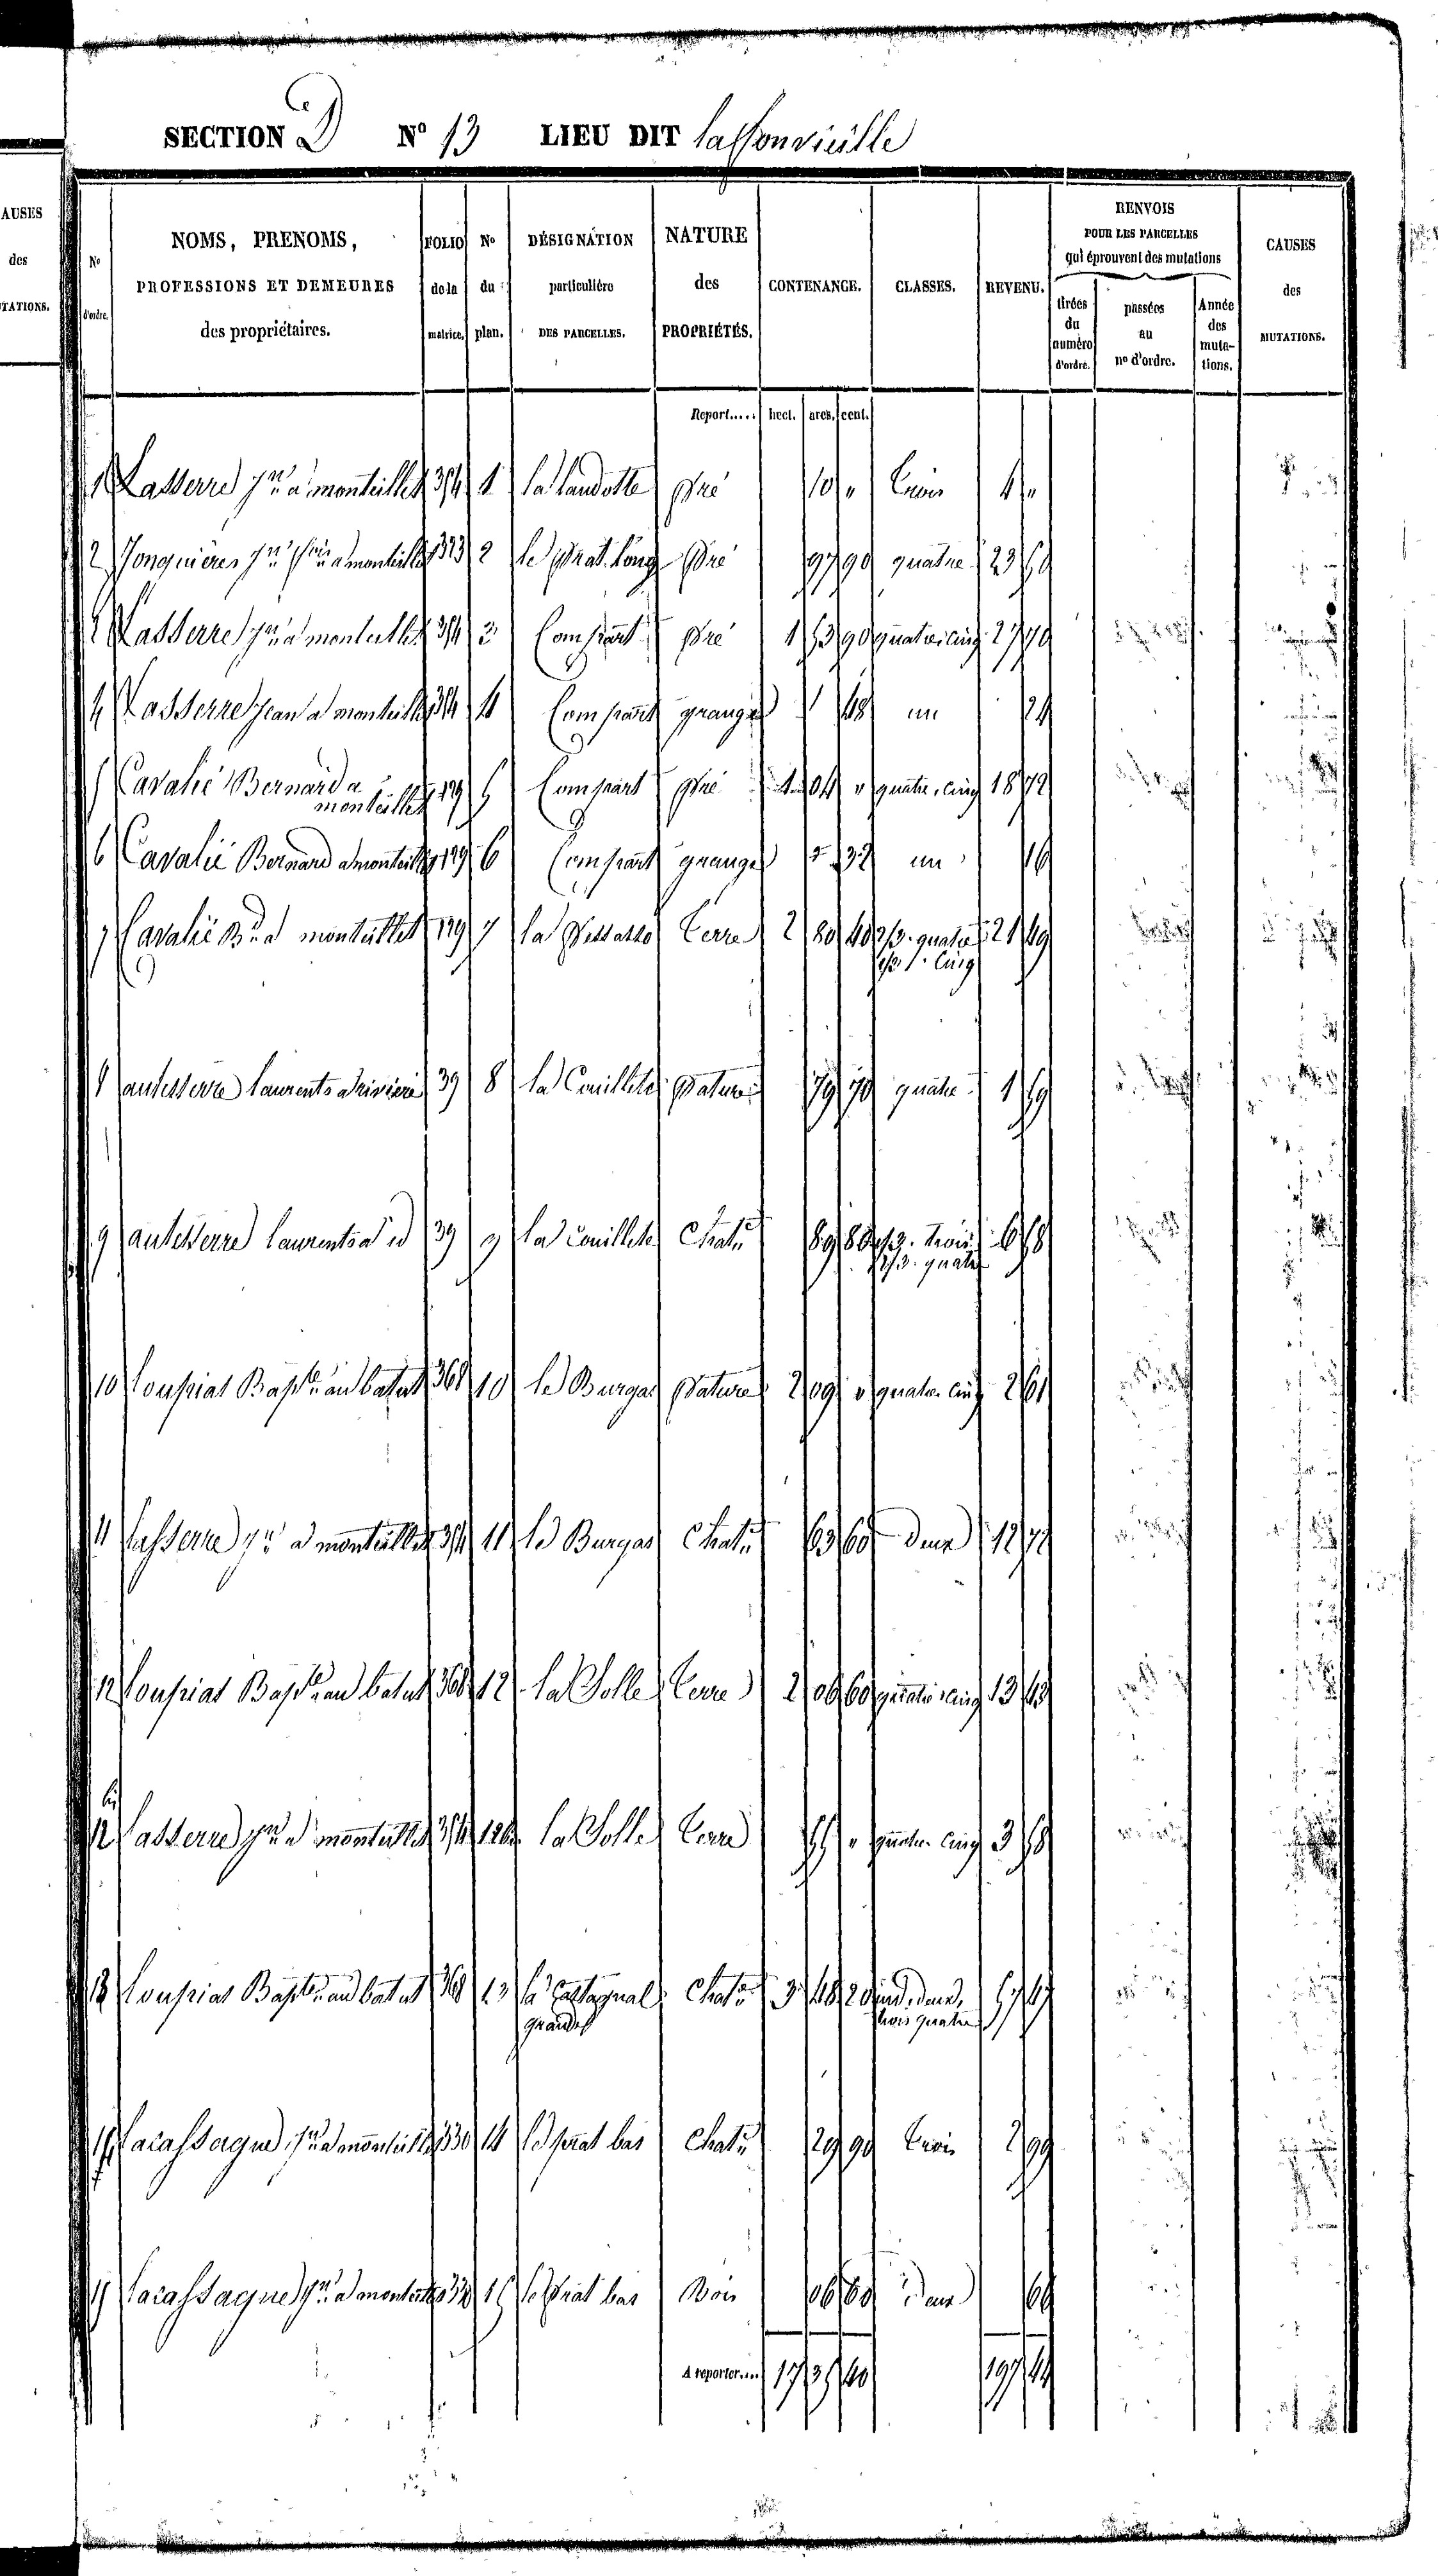 SECTION D N° 13 LIEU DIT
AUSES
des
TATIONS.
N°
d'ordre.
NOMS, PRENOMS,
PROFESSIONS ET DEMEURES
des propriétaires.
FOLIO
de la
matrice.
N°
du
plan.
DÉSIGNATION
particulière
DES PARCELLES.
NATURE
des
PROPRIÉTÉS.
CONTENANCE.
CLASSES.
REVENU.
RENVOIS
POUR LES PARCELLES
qui éprouvent des mutations
tirées
du
numéro
d'ordre.
passées
au
n° d'ordre.
Année
des
muta-
tions.
CAUSES
des
MUTATIONS.
Report..... hect. ares. cent.
1 Lasserre Jn a monteillet 314 1 la landette pré 10 " trois 4 "
2 Jonquières Jn a monteillet 313 2 le prat long pré 97 90 quatre 23 50
Lasserre Jn a monteillet 314 3 Compart pré 1 53 90 quatre, cinq 27 70
4 Lasserre Jean a monteillet 314 4 Compart grange 48 un 24
5 Cavalié Bernard a
monteillet 129 5 Compart pré 1 04 " quatre, cinq 18 72
6 Cavalié Bernard a monteillet 129 6 Compart grange 32 un 16
7 Cavalié Bd a monteillet 129 7 la terre 2 80 40 2/3 quatre 21 49
1/3 cinq
8 autesserre laurents 39 8 la Couillete pature 79 70 quatre 1 59
9 autesserre laurents a id 39 9 la Couillete Chatr 89 80 trois 6 58
1/3 quatre
10 loupias Bapte au batut 368 10 le Burgas pature 2 09 " quatre cinq 2 61
11 lasserre Jn a monteillet 314 11 le Burgas Chatr 63 60 deux 12 72
12 loupias Bapte au batut 368 12 la Solle terre 2 06 60 quatre, cinq 13 43
bis
12 lasserre Jn a monteillet 314 12 bis la Solle terre 55 " quatre cinq 3 58
13 loupias Bapte au batut 368 13 la Castagnal Chatr 3 48 20 deux,
grande trois quatre
14 lacassagne Jn a monteillet 330 14 le prat bas Chatr 29 90 trois 2 99
15 lacassagne Jn a monteillet 330 15 le prat bas Bois 06 60 deux 66
A reporter.... 17 35 40 197 44